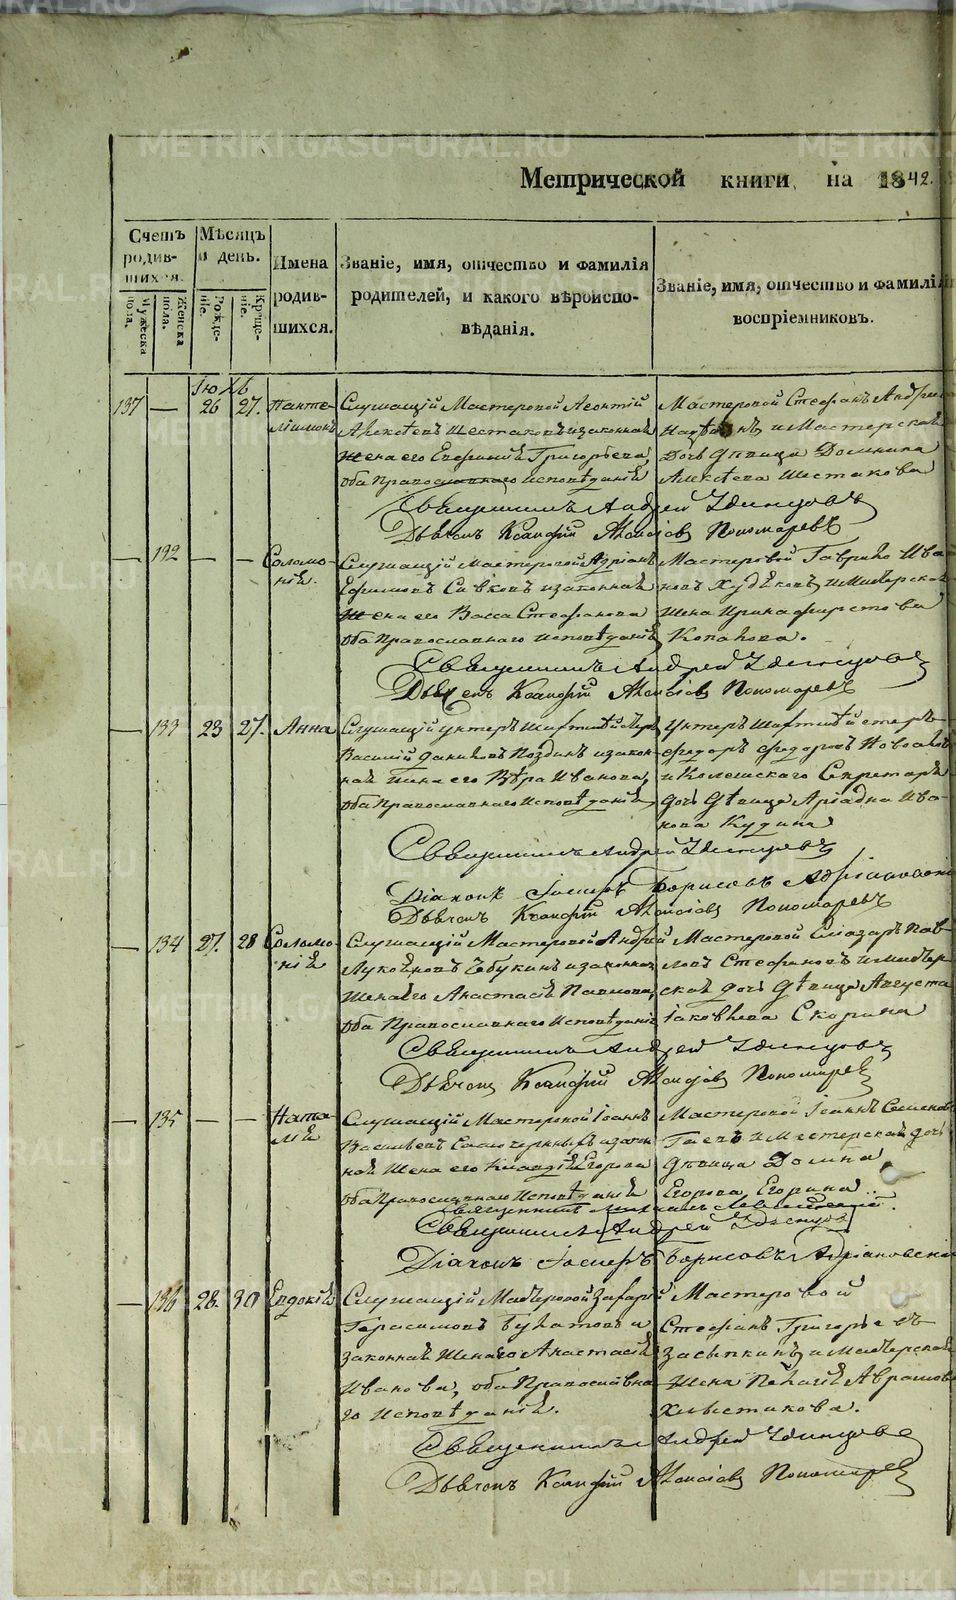 Метрической книги на 1842.
Счетъ родив-шихся.
Мужеска пола.
Женска пола.
Мѣсяцъ и день.
Рожде-ніе.
Крще-ніе.
Имена родив-шихся.
Званіе, имя, отчество и фамилія
родителей, и какого вѣроиспо-
вѣданія.
Званіе, имя, отчество и фамилія
воспріемниковъ.
Іюль
137 — 26 27. Панте-
леимонъ
Служащій Мастеровой Леонтій
Алексѣевъ Шестаковъ и законная
жена его Евфимія Григорьева,
оба Православнаго исповѣданія
Мастеровой Стефанъ
и Мастерская
Дочь дѣвица Домника
Алексѣева Шестакова
Священникъ Андрей Удинцовъ
Дьячокъ Ксенофонтъ Пономаревъ
— 132 — — Соломо-
нія.
Служащій Мастеровой Адріанъ
Ефимовъ Сивковъ и законная
жена его Васса Стефанова
оба Православнаго исповѣданія
Мастеровой Гаврило Ива-
новъ Худяковъ, и Мастерская
жена Ирина
Копакова.
Священникъ Андрей Удинцовъ
Дьячекъ Ксенофонтъ Пономаревъ
— 133 23 27. Анна
Служащій Унтеръ Шихтмейстеръ
Василій Даниловъ Поздинъ и закон-
ная жена его Вѣра Иванова,
оба Православнаго исповѣданія,
Унтеръ Шихтмейстеръ
Федоръ Федоровъ
и Колежскаго Секретаря
дочь дѣвица Аріадна Ива-
нова Кудина
Священникъ Андрей Удинцовъ
Діаконъ Іосифъ Борисовъ Адріановскій
Дьячокъ Ксенофонтъ Пономаревъ
— 134 27. 28 Соломо-
нія
Служащій Мастеровой Андрей
Лукояновъ Чебукинъ и законная
жена его Анастасія Павлова,
оба Православнаго исповѣданія
Мастеровой Елизаръ Пав-
ловъ Стефановъ и Мастер-
ская дочь дѣвица Августа
Іаковлева Скорина
Священникъ Андрей Удинцовъ
Дьячокъ Ксенофонтъ Пономаревъ
— 135 — — Ната-
лія
Служащій Мастеровой Іоаннъ
Васильевъ и закон-
ная жена его Клавдія Егорова
оба Православнаго исповѣданія
Мастеровой Іоаннъ Семеновъ
и Мастерская дочь
дѣвица Домна
Егорова Егорина.
Священникъ Михаилъ
Священникъ Андрей Удинцовъ
Діаконъ Іосифъ Борисовъ Адріановскій
— 136 28. 30 Евдокія
Служащій Мастеровой Захарій
Герасимовъ Булатовъ и
законная жена его Анастасія
Иванова, оба Православна-
го исповѣданія.
Мастеровой
Стефанъ Григорьевъ
Засыпкинъ, и Мастерская
жена Пелагія Аврамова
Хлыстикова.
Священникъ Андрей Удинцовъ
Дьячокъ Ксенофонтъ Пономаревъ
METRIKI.GASO-URAL.RU